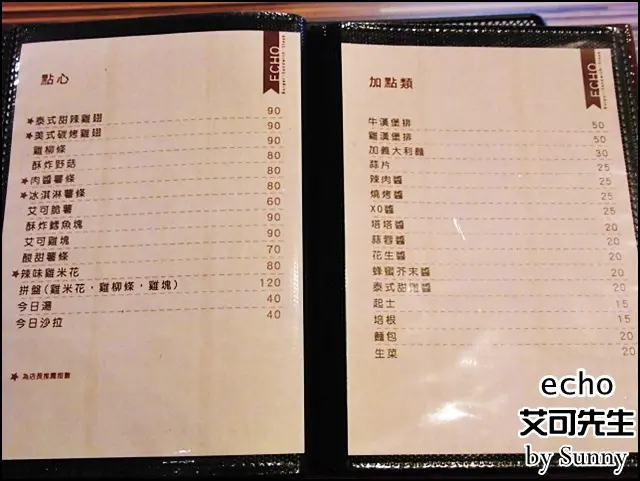 ECHO
Burger·Sandwich·Steak
點心
★泰式甜辣雞翅 90
★美式碳烤雞翅 90
雞柳條 90
酥炸野菇 80
★肉醬薯條 80
★冰淇淋薯條 80
艾可脆薯 60
酥炸鱈魚塊 90
艾可雞塊 90
酸甜薯條 70
★辣味雞米花 80
拼盤(雞米花，雞柳條，雞塊) 120
今日湯 40
今日沙拉 40
★ 為店長推薦指數
ECHO
Burger·Sandwich·Steak
加點類
牛漢堡排 50
雞漢堡排 50
加義大利麵 30
蒜片 25
辣肉醬 25
燒烤醬 25
XO醬 25
塔塔醬 20
蒜蓉醬 20
花生醬 20
蜂蜜芥末醬 20
泰式甜雞醬 20
起士 15
培根 15
麵包 20
生菜 20
echo
艾可先生
by Sunny